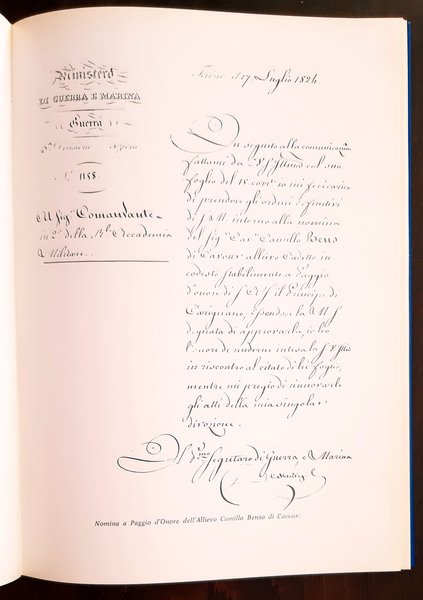 Ministero
DI GUERRA E MARINA
Guerra
N° 1158
Al Sig.r Comandante
in 2° della R.le Accademia
Militare
Torino il 17 Luglio 1824
In seguito alla comunicazione
fattami da V. S. Ill.ma col suo
foglio del 15 corr.te mi feci carico
di prender gli ordini definitivi
di S. M. intorno alla nomina
del Sig.r Cav.r Camillo Bens
di Cavour allievo Cadetto in
codesto stabilimento a Paggio
d'onore di S. A. S. il Principe di
Carignano; essendosi la M. S.
degnata di approvarla, io ho
l'onore di renderne intesa la S. V. Ill.ma
in riscontro al citato di lei foglio,
mentre mi pregio di rinnovarle
gli atti della mia singolar
divozione.
Il P.mo Segretaro di Guerra, e Marina
Nomina a Paggio d'Onore dell'Allievo Camillo Benso di Cavour.